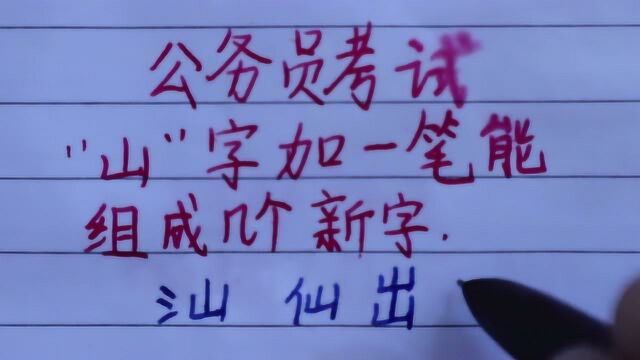 公务员考试
"山"字加一笔能
组成几个新字.
汕 仙 出